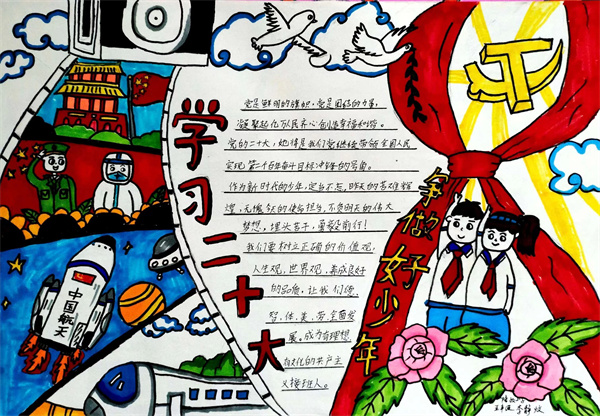 学习二十大
党是鲜明的旗帜,党是团结的力量,
凝聚起亿万人民齐心创造幸福和谐。
党的二十大,她将是我们党继续带领全国人民
实现第二个百年奋斗目标冲锋的号角。
作为新时代的少年,定当不忘昨天的苦难辉
煌,无愧今天的使命担当,不负明天的伟大
梦想,埋头苦干,勇毅前行!
我们要树立正确的价值观,
人生观,世界观,养成良好
的品质,让我们德、
智、体、美、劳全面发
展,成为有理想
有文化的共产主
义接班人。
争做好少年
中国航天